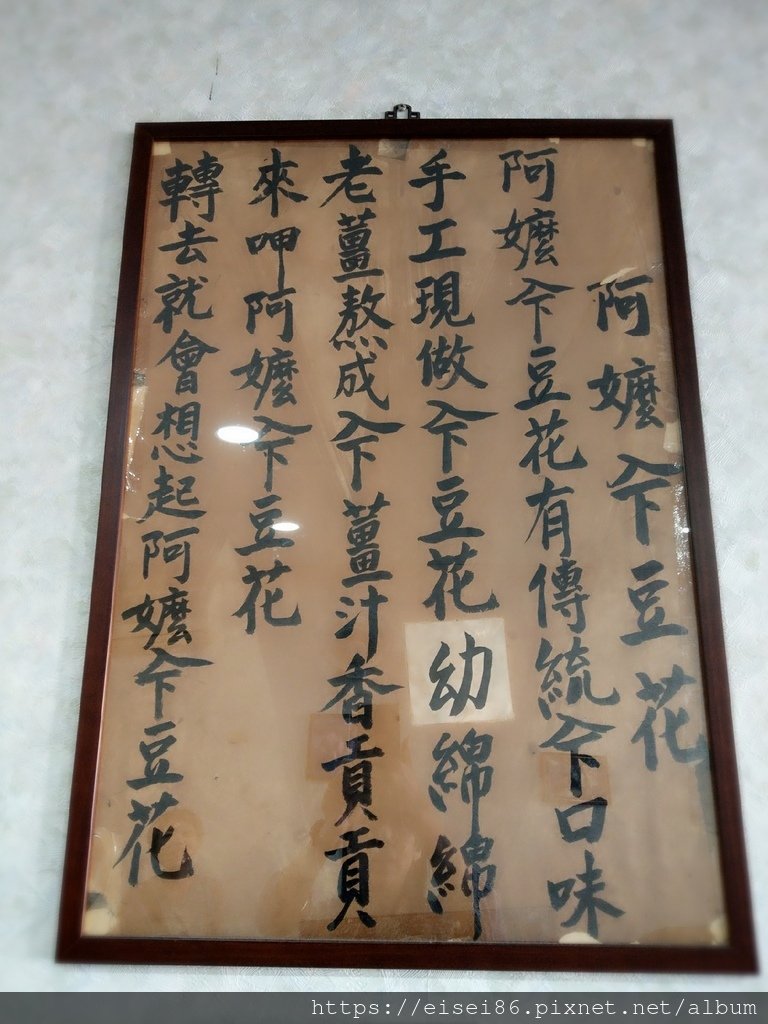 阿嬤仒豆花
阿嬤仒豆花有傳統仒口味
手工現做仒豆花幼綿綿
老薑熬成仒薑汁香貢貢
來呷阿嬤仒豆花
轉去就會想起阿嬤仒豆花
https://eisei86.pixnet.net/album